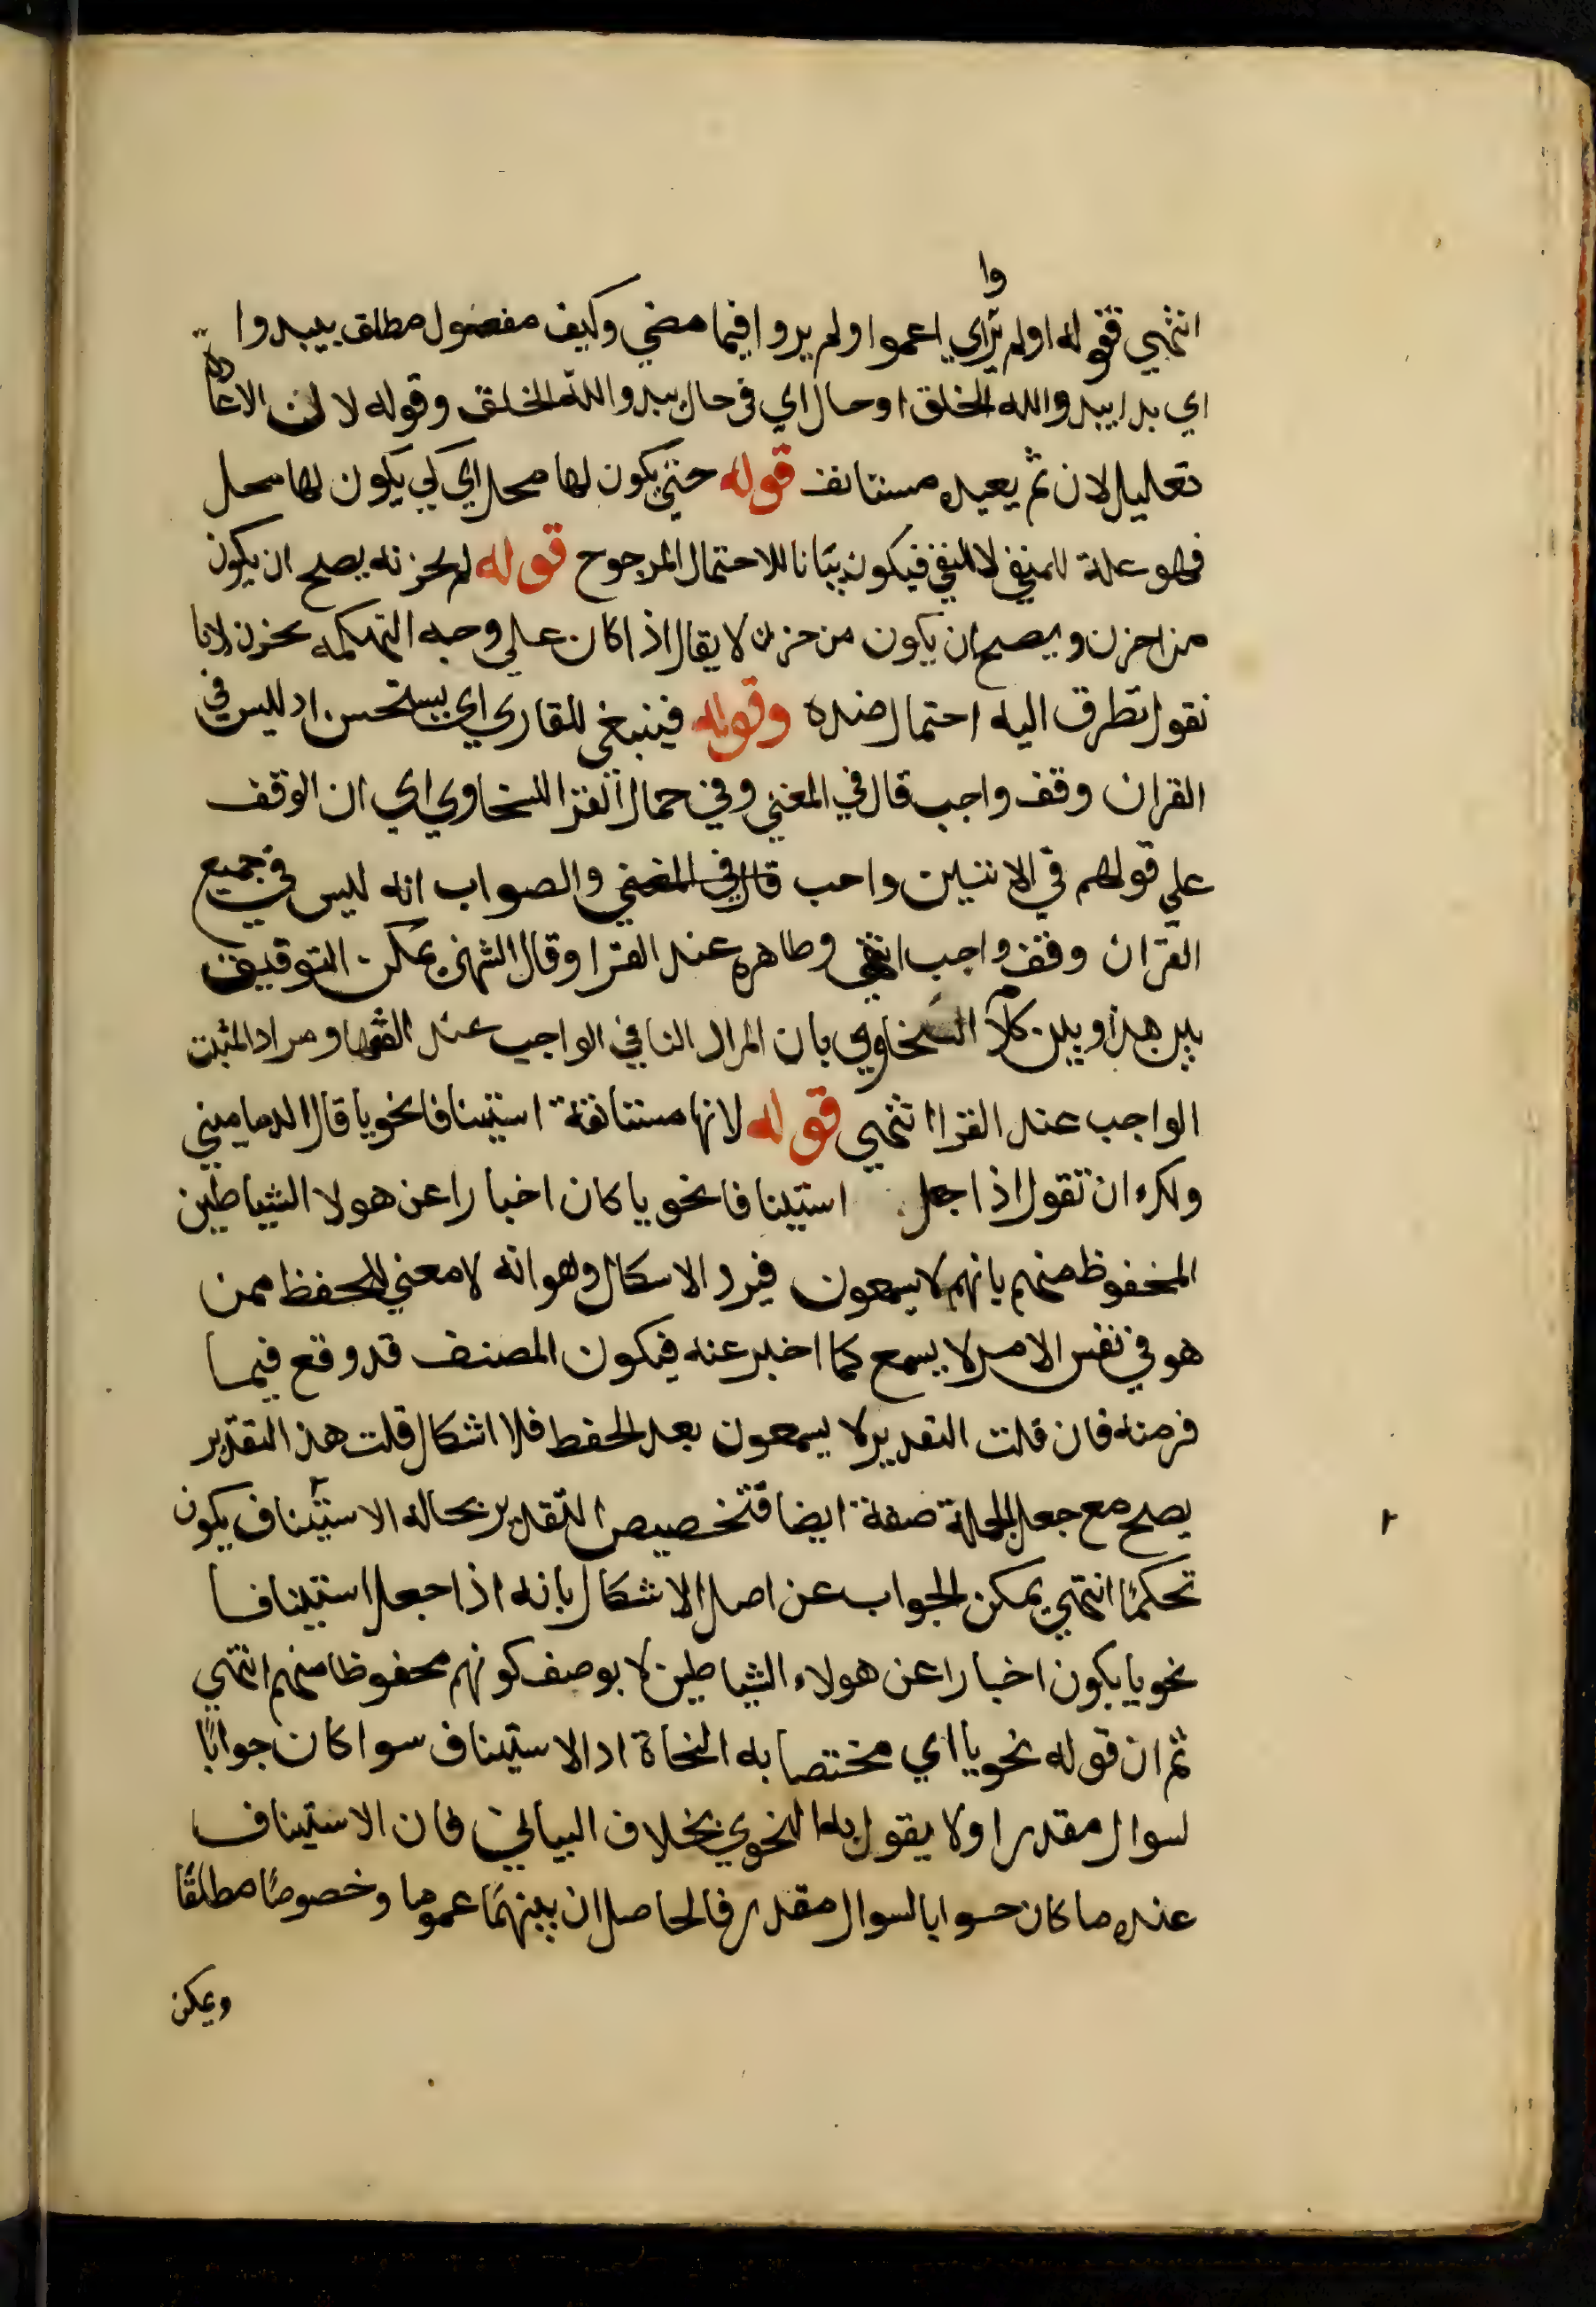 انتهي فقوله اولم يروا اي اعموا ولم يروا فيما مضي وكيف مفعول مطلق بيبدوا
اي بدا يبدوالله الخلق اوحال اي في حال يبدوالله الخلق وقوله لان الاعادة
تعليل لان ثم يعيده مستانف قوله حتي يكون لها محل اي كي يكون لها محل
فهو علة للمنفي لا للنفي فيكون بيانا للاحتمال المرجوح قوله لم يحزنه يصلح ان يكون
من احزن ويصلح ان يكون من حزن لا يقال اذا كان علي وجه التهكم يحزن لانا
نقول تطرق اليه احتمال ضده وقوله فينبغي للقاري اي يستحسن اد ليس في
القران وقف واجب قال في المغني وفي جمال القرا للسخاوي اي ان الوقف
علي قولهم في الاثنين واحب قال في المغني والصواب انه ليس في جميع
القران وقف واجب انتهي وظاهره عند القرا وقال الشمني يمكن التوفيق
بين هذا وبين كلام السخاوي بان المراد النافي الواجب عند الفقها ومراد المثبت
الواجب عند القرا انتهي قوله لانها مستانفة استينافا نحويا قال الدماميني
ولك ان تقول اذا جعل استينافا نحويا كان اخبارا عن هولا الشياطين
المحفوظ منهم بانهم لا يسمعون فيرد الاسكال وهو انه لا معني للحفظ ممن
هو في نفس الامر لا يسمع كما اخبر عنه فيكون المصنف قد وقع فيما
فر منه فان قلت التقدير لا يسمعون بعد الحفط فلا اشكال قلت هذ التقدير
يصلح مع جعل الجملة صفة ايضا فتخصيص التقدير بحالة الاستيناف يكون
تحكما انتهي يمكن الجواب عن اصل الاشكال بانه اذا جعل استينافا
نحويا يكون اخبارا عن هولاء الشياطين لا بوصف كونهم محفوظا منهم انتهي
ثم ان قوله نحويا اي مختصا به النحاة اد الاستيناف سوا كان جوابا
لسوال مقدر اولا يقول به النحوي بخلاف البياني فان الاستيناف
عنده ما كان جوابا لسوال مقدر فالحاصل ان بينهما عموما وخصوصا مطلقا
ويمكن